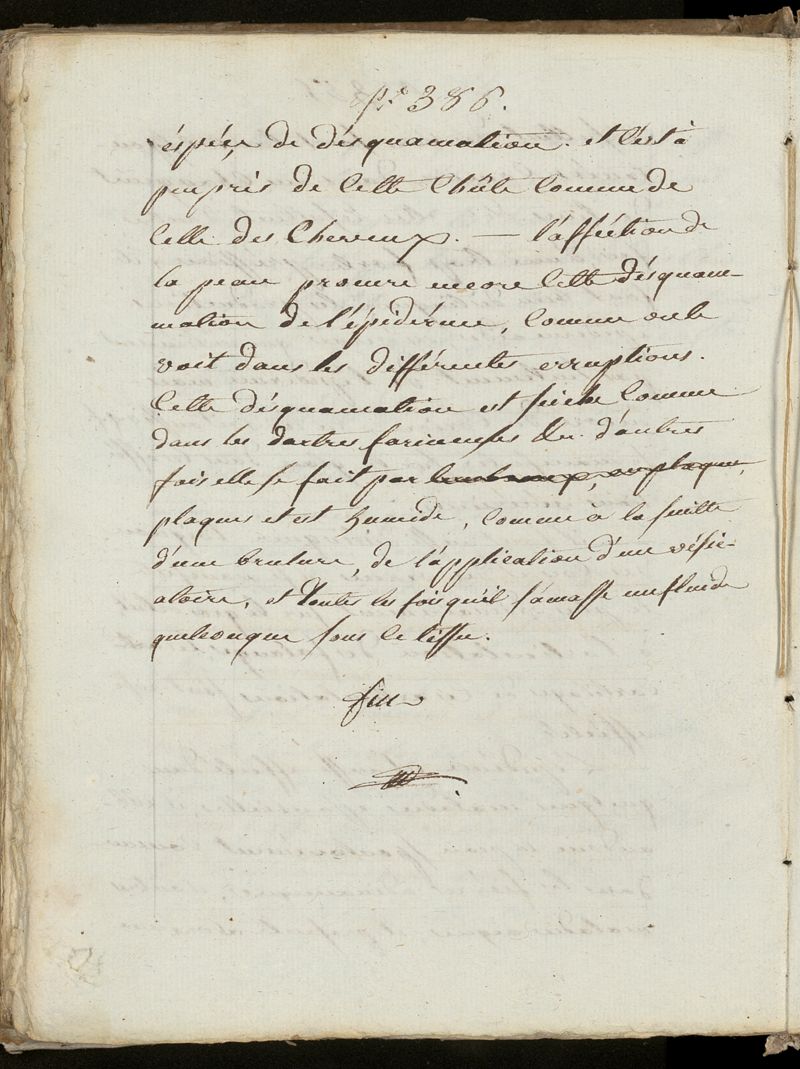 pe. 386.
éspéce de désquamation. et c'est à
peu pris de Cette Chûte Comme de
Celle des Cheveux. — l'afféction de
la peau procure encore Cette désquam-
mation de l'épidérme, Comme on le
voit dans les différentes erruptions.
Cette désquamation est séiche Comme
dans les dartres farineuses &c. d'autres
fois elle se fait par lambeaux, ou plaques,
plaques et est humide, Comme à la suitte
d'une brulure, de l'application d'un vésic-
atoire, et toutes les fois qu'il s'amasse un fluide
quelconque sous le tissu.
fin